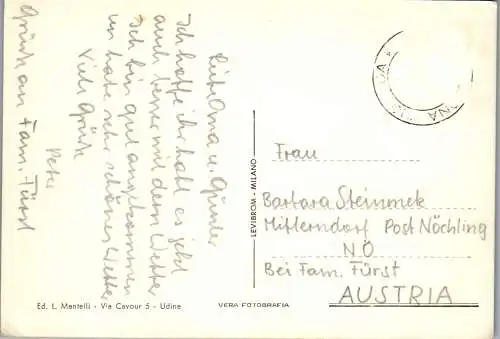 Liebe Oma u. Günter
Ich hoffe ihr habt es jetzt
auch besser mit dem Wetter
Ich bin gut angekommen
un habe sehr schönes Wetter
Viele Grüße
Peter
Grüße an Fam. Fürst
LEVIBROM - MILANO
Frau
Barbara Steinmek
Mitterndorf Post Nöchling
NÖ
Bei Fam. Fürst
AUSTRIA
Ed. L. Mantelli - Via Cavour 5 - Udine
VERA FOTOGRAFIA